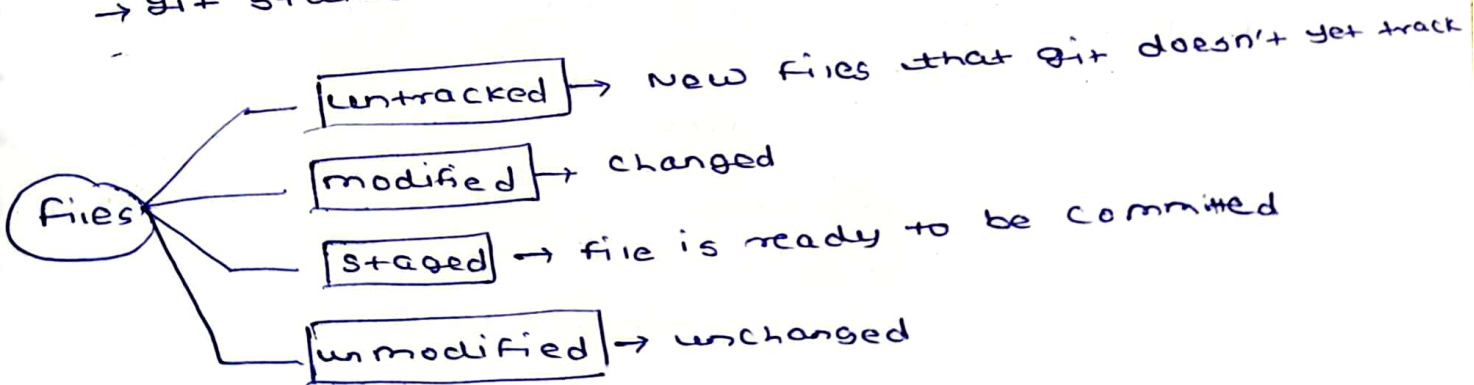 → git
untracked → New files that git doesn't yet track
modified → changed
files
staged → file is ready to be committed
unmodified → unchanged